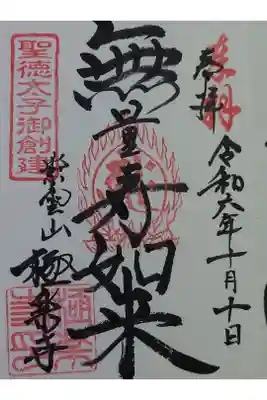 奉拝
令和六年十月十日
無量寿如来
聖徳太子御創建
紫雲山
極楽寺